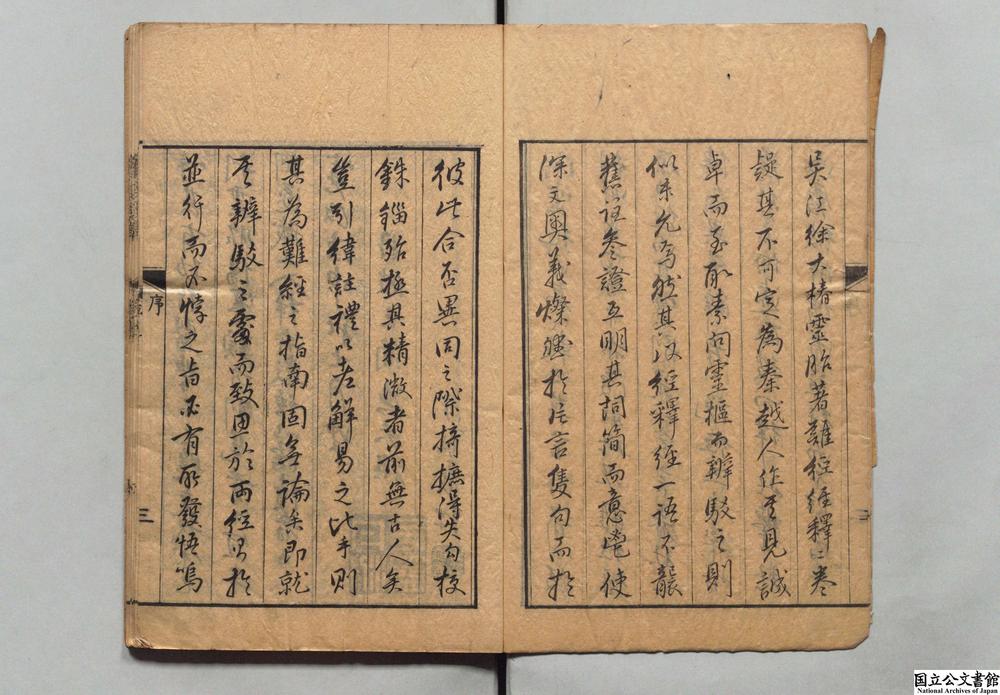 吳江徐大椿靈胎著難經經釋二卷
疑其不可定為秦越人作其見誠
卓而至取素問靈樞而辨駁之則
似未允為然其以經釋經一語不襲
舊註參證互明其詞簡而意鬯使
深文奧義燦然於片言隻句而於
彼此合否異同之際掎摭得失勾校
銖錙殆極其精微者前無古人矣
豈引緯註禮以老解易之比乎則
其為難經之指南固無論矣即就
其辨駁之處而致思於兩經者於
並行而不悖之旨必有所發悟焉
序
三
国立公文書館
National Archives of Japan